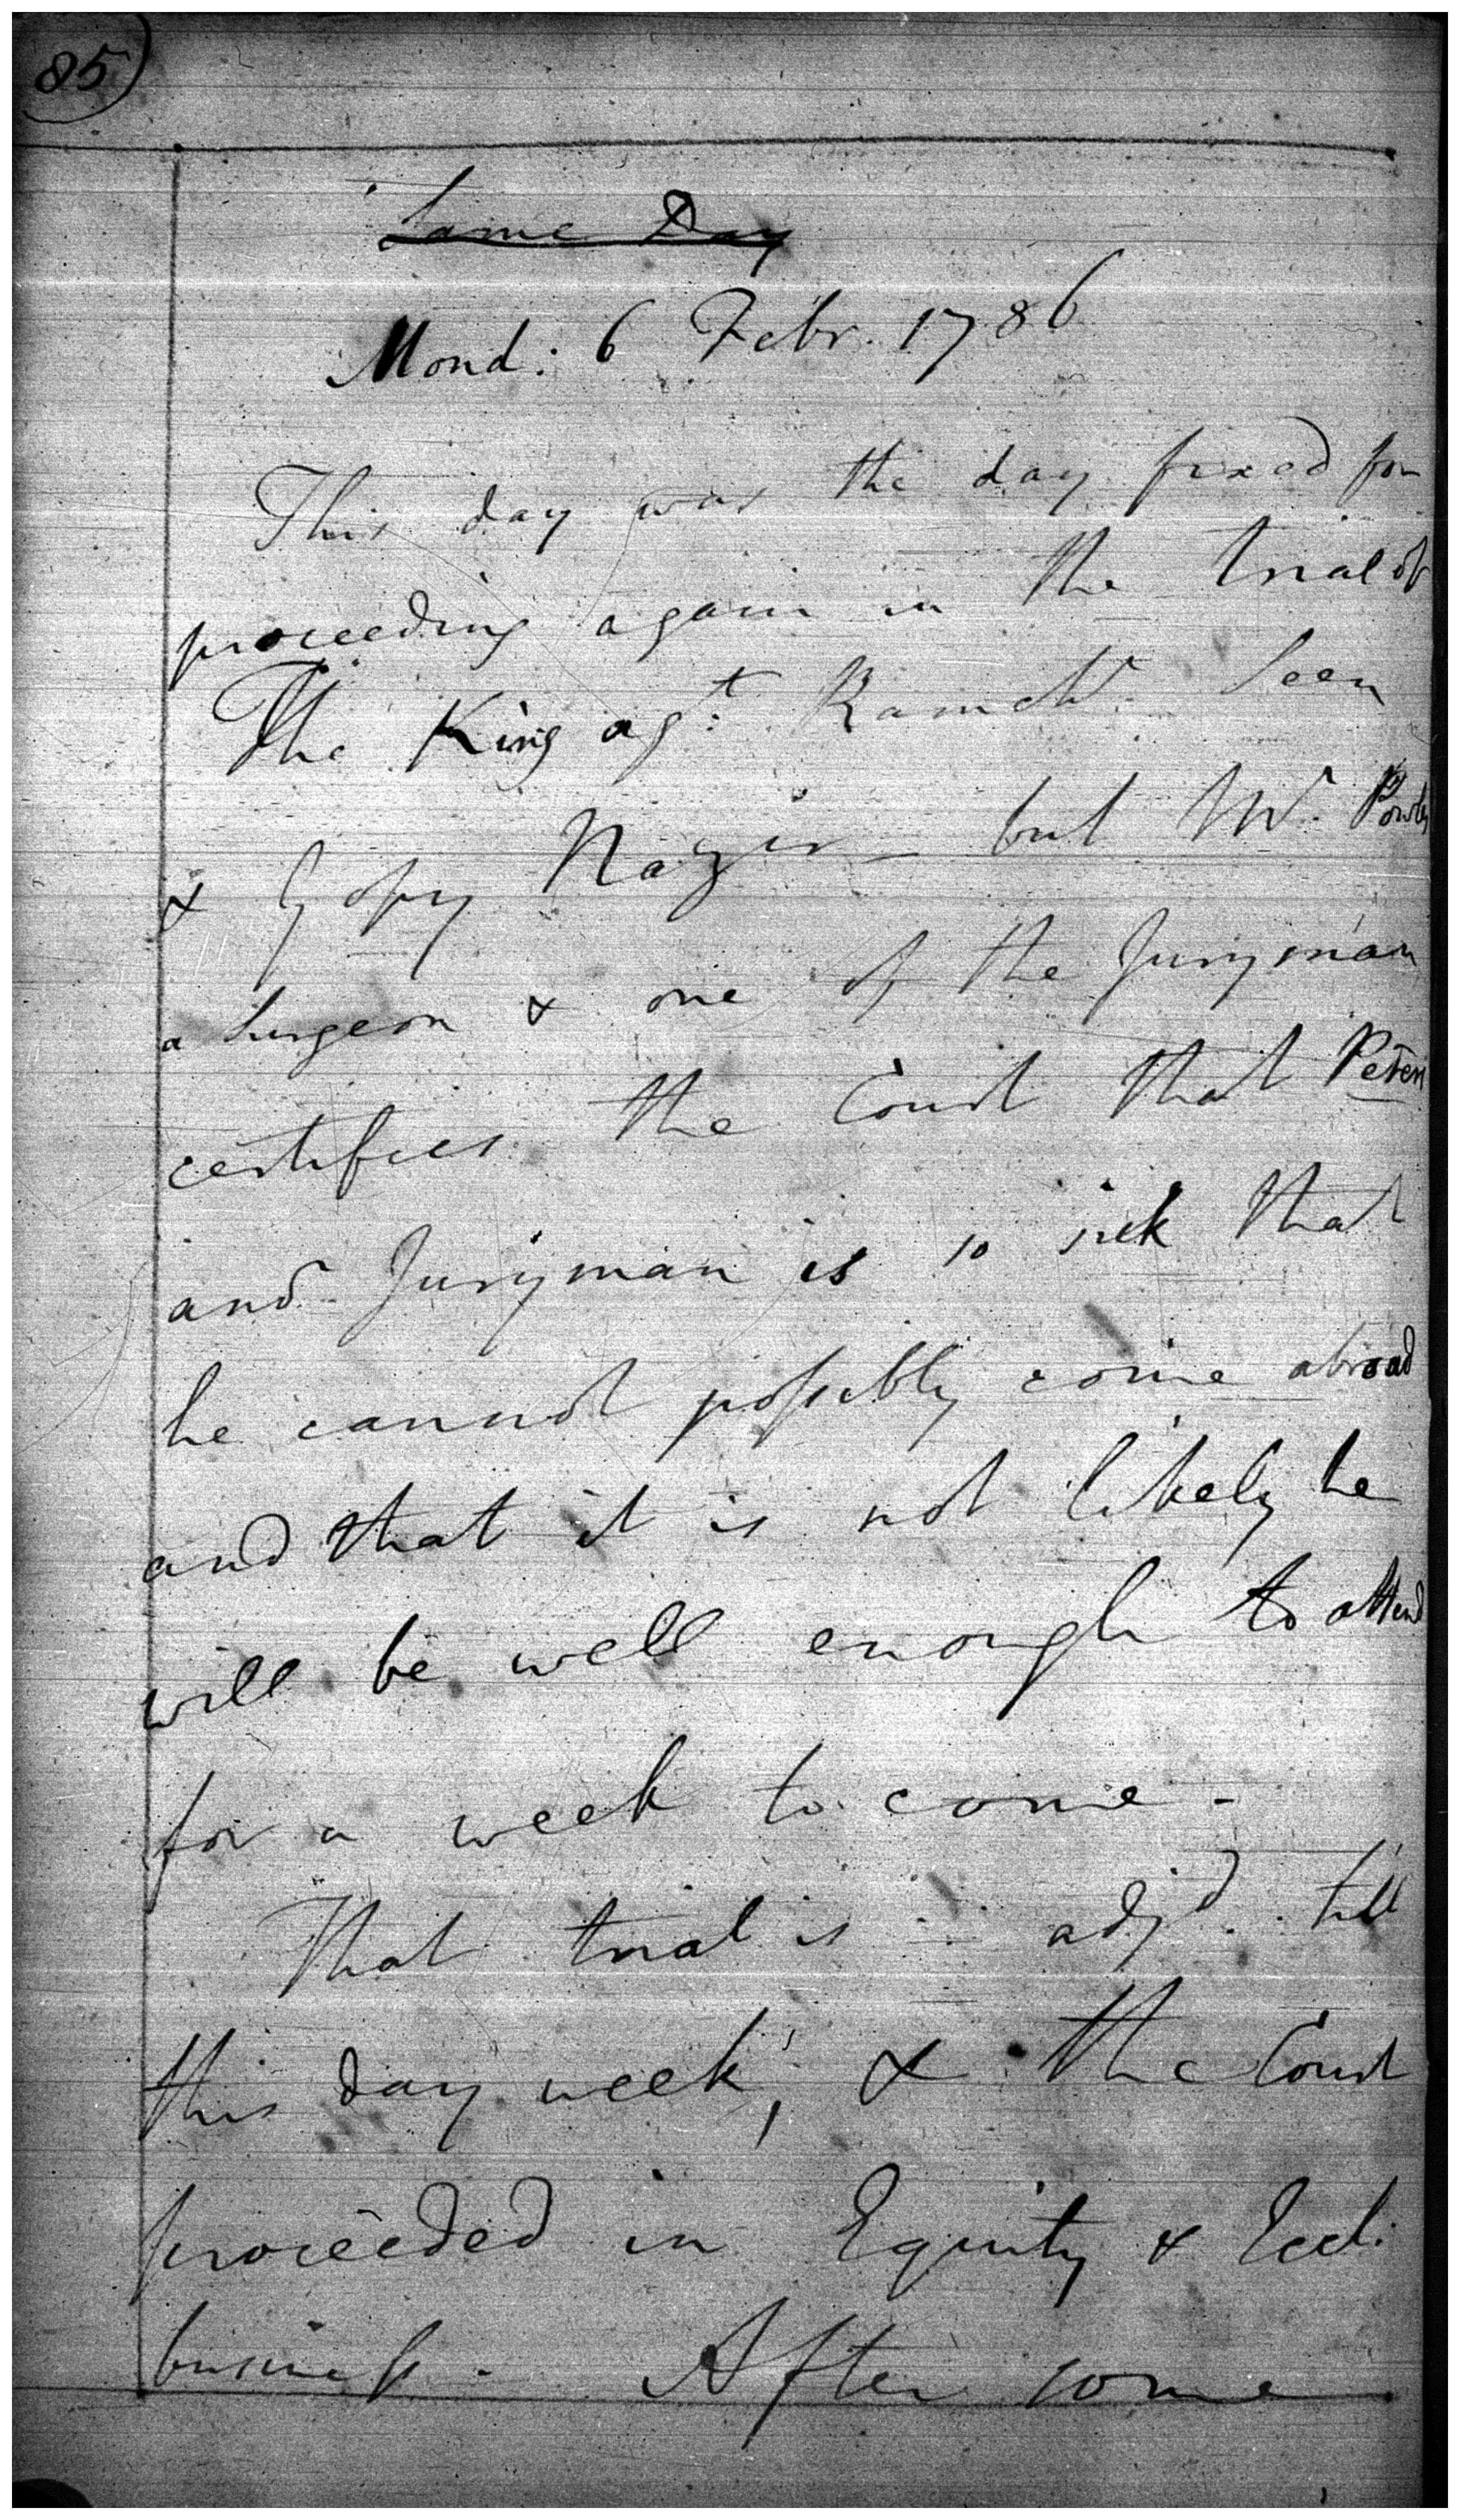 85)
Same Day
Mond: 6 Febr. 1786
This day was the day fixed for
proceeding again in the trial of
The King agt. Ramchr. Seen
& Gopy Nazir – but Mr. Powly
a Surgeon & one of the Juryman
certifies the Court that Peters
and Juryman is so sick that
he cannot possibly come abroad
and that it is not likely he
will be well enough to attend
for a week to come –
That trial is adjd. till
this day week; & the Court
proceeded in Equity & Eccl.
business. After some